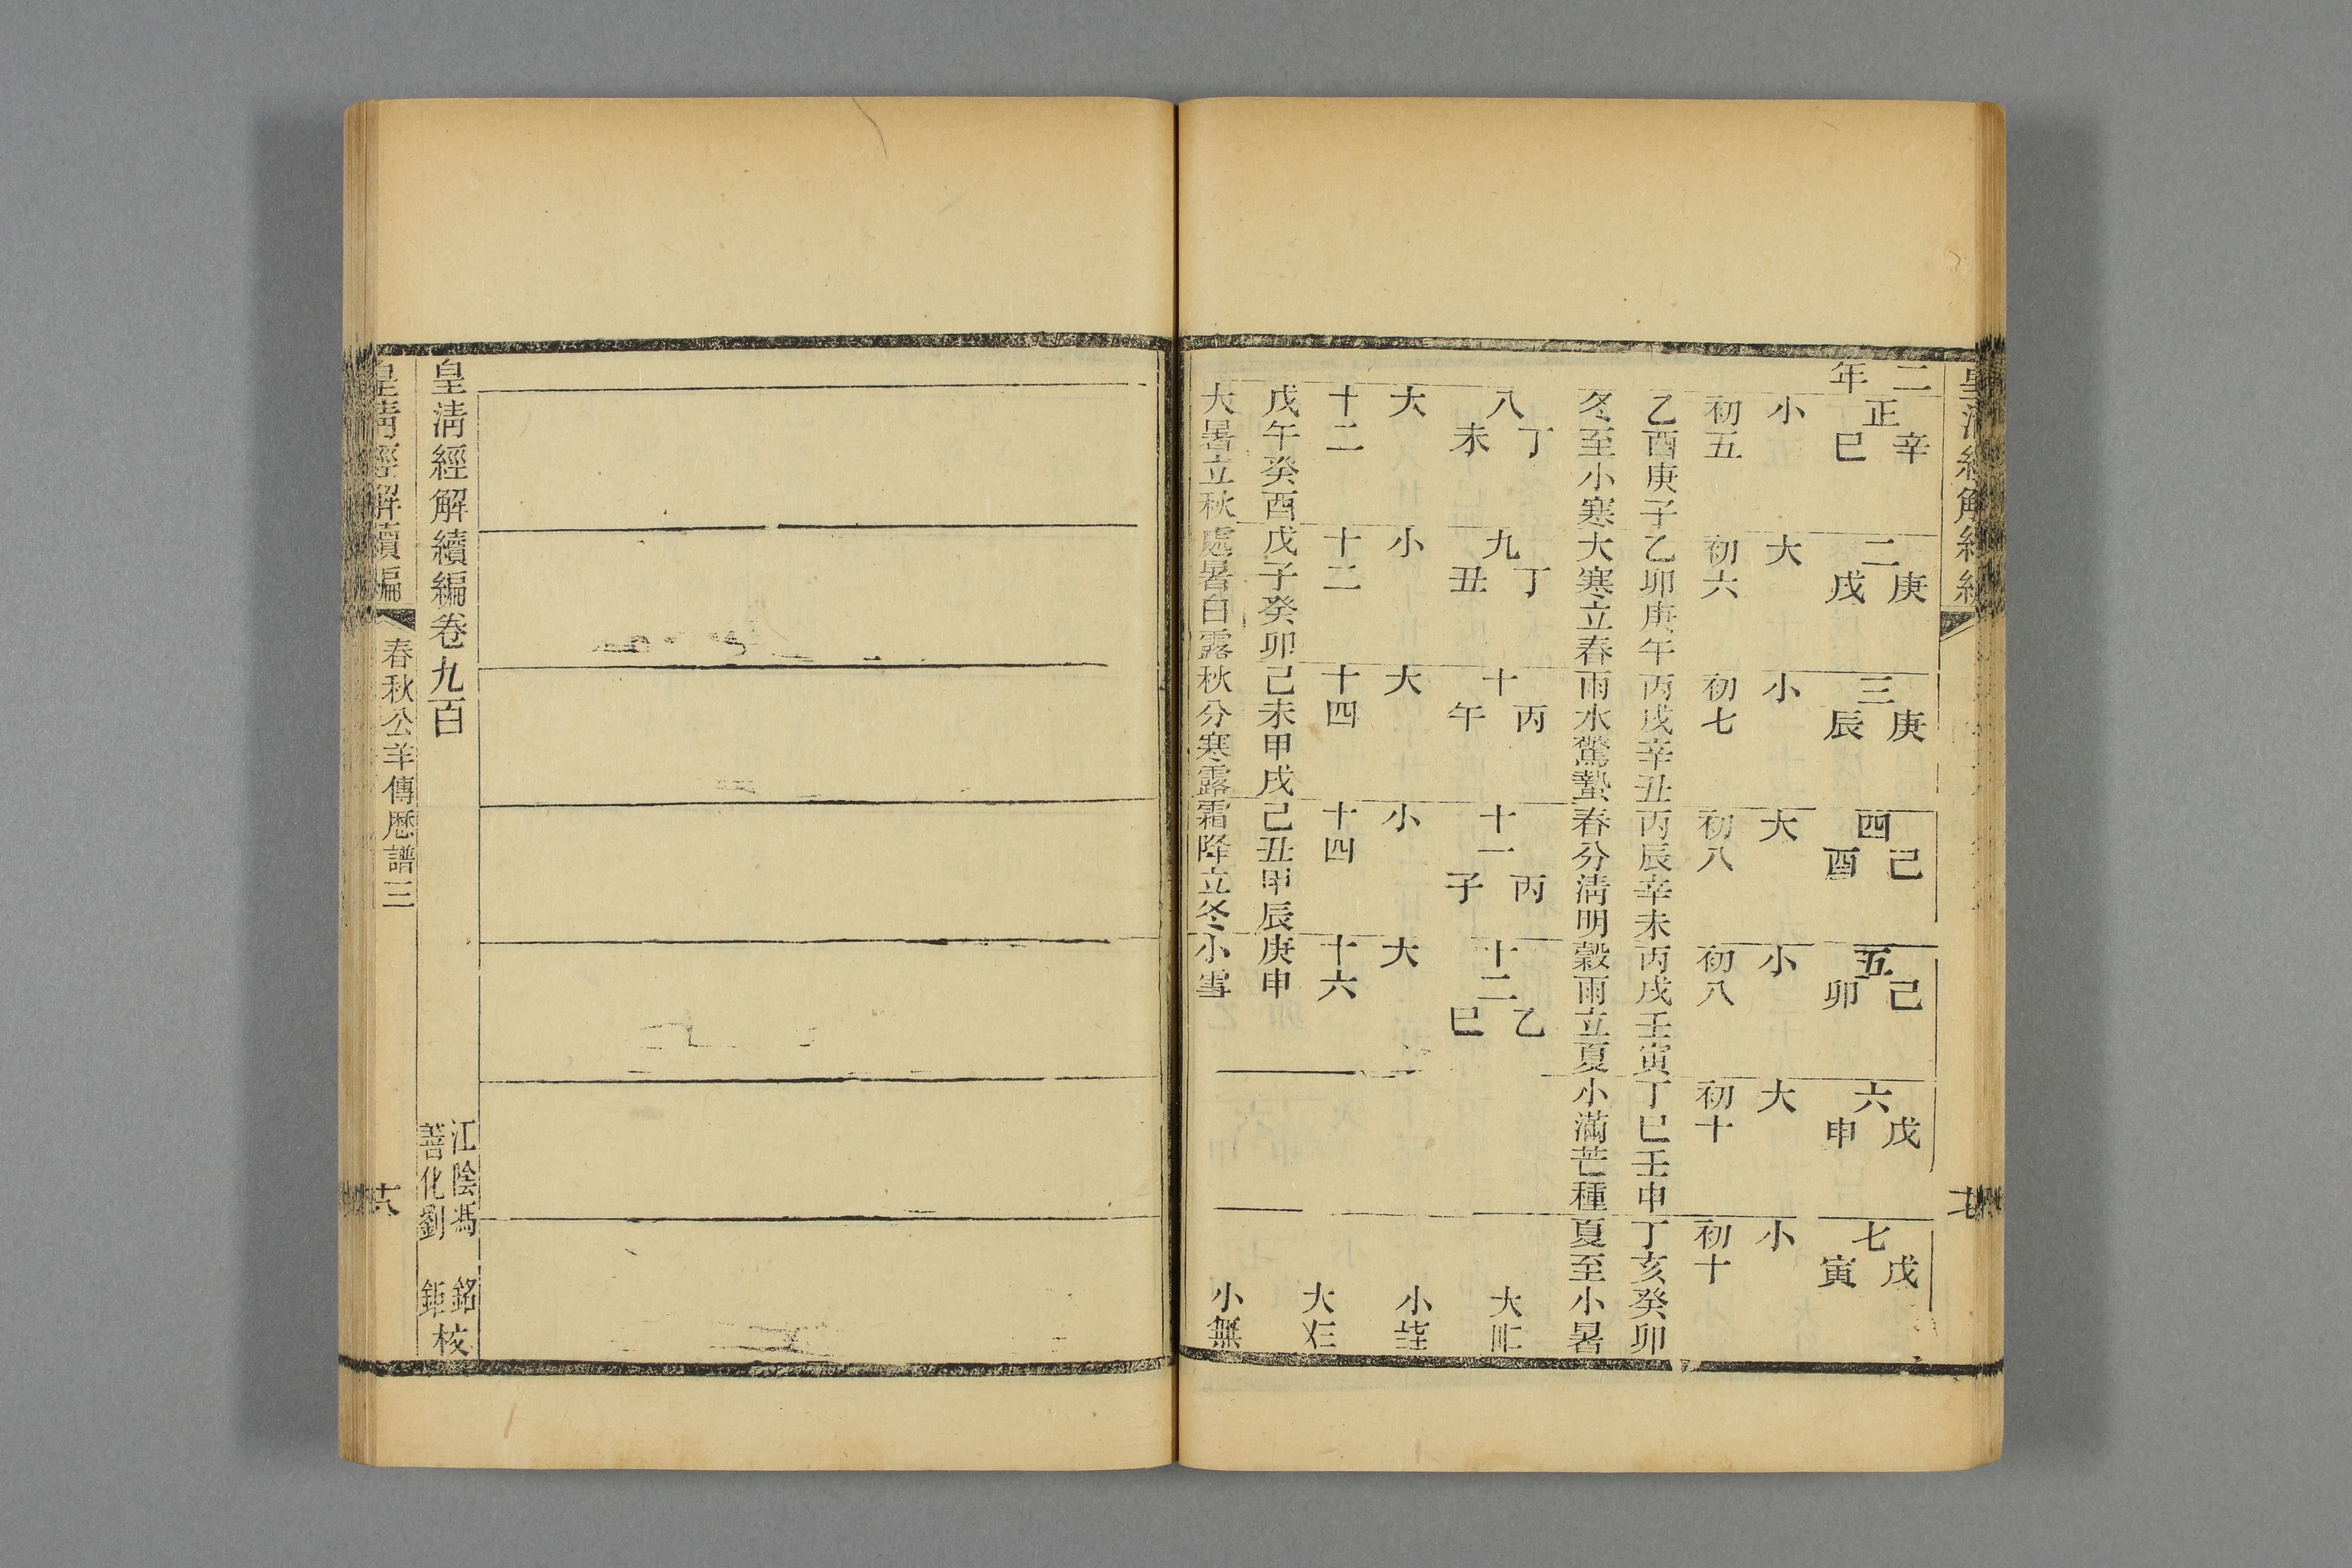 二年
正 辛巳
二 庚戌
三 庚辰
四 己酉
五 己卯
六 戊申
七 戊寅
小 大 小 大 小 大 小
初五 初六 初七 初八 初八 初十 初十
乙酉庚子 乙卯庚午 丙戌辛丑 丙辰辛未 丙戌壬寅 丁巳壬申 丁亥癸卯
冬至小寒 大寒立春 雨水驚蟄 春分淸明 穀雨立夏 小滿芒種 夏至小暑
八 丁未
九 丁丑
十 丙午
十一 丙子
十二 乙巳
大 小 大 小 大
十二 十二 十四 十四 十六
戊午癸酉 戊子癸卯 己未甲戌 己丑甲辰 庚申
大暑立秋 處暑白露 秋分寒露 霜降立冬 小雪
大
小
大
小無
皇淸經解續編卷九百
江陰馮銘
善化劉鉅
校
皇淸經解續編
春秋公羊傳厯譜三